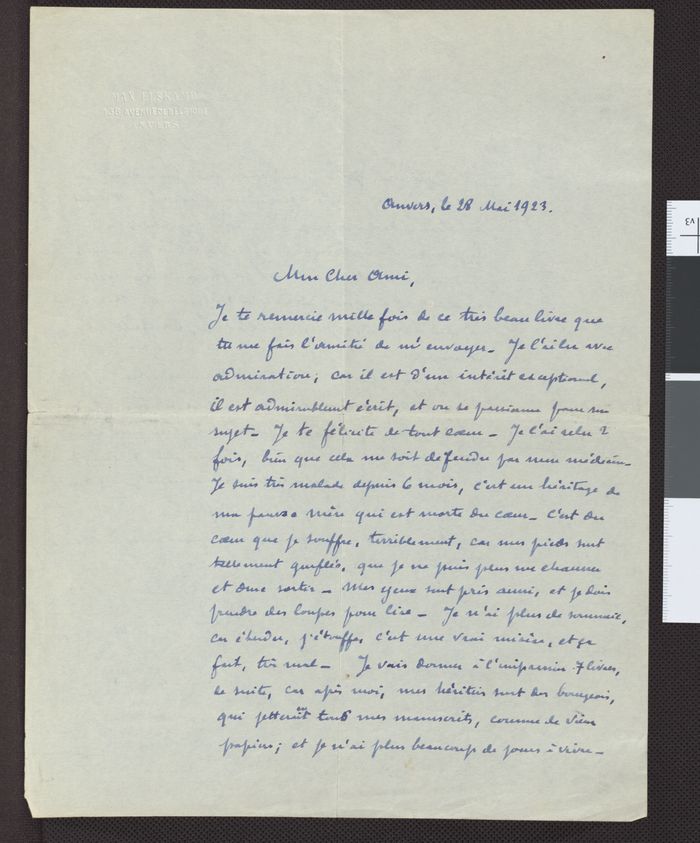 MAX ELSKAMP
138 AVENUE DE BELGIQUE
ANVERS
Anvers, le 28 Mai 1923.
Mon Cher Ami,
Je te remercie mille fois de ce très beau livre que
tu me fais l'amitié de m'envoyer_ Je l'ai lu avec
admiration; car il est d'un intérêt exceptionnel,
il est admirablement écrit, et on se passionne pour son
sujet_ Je te félicite de tout cœur_ Je l'ai relu 2
fois, bien que cela me soit defendu par mon médecin_
Je suis très malade depuis 6 mois, c'est un héritage de
ma pauvre mère qui est morte du cœur_ C'est du
cœur que je souffre, terriblement, car mes pieds sont
tellement gonflés, que je ne puis plus me chausser
et donc sortir_ Mes yeux sont pris aussi, et je dois
prendre des loupes pour lire_ Je n'ai plus de sommeil,
car étendu, j'étouffe, c'est une vrai misère, et ça
fait, très mal_ Je vais donner à l'imprimeur 7 livres,
de suite, car après moi, mes héritiers sont des bourgeois,
qui jetteraient tous mes manuscrits, comme de vieux
papiers; et je n'ai plus beaucoup de jours à vivre_